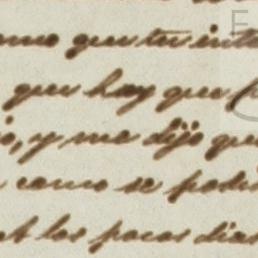 que tu inte
que hay que
y me dijo que
como se podi
los pocos dias